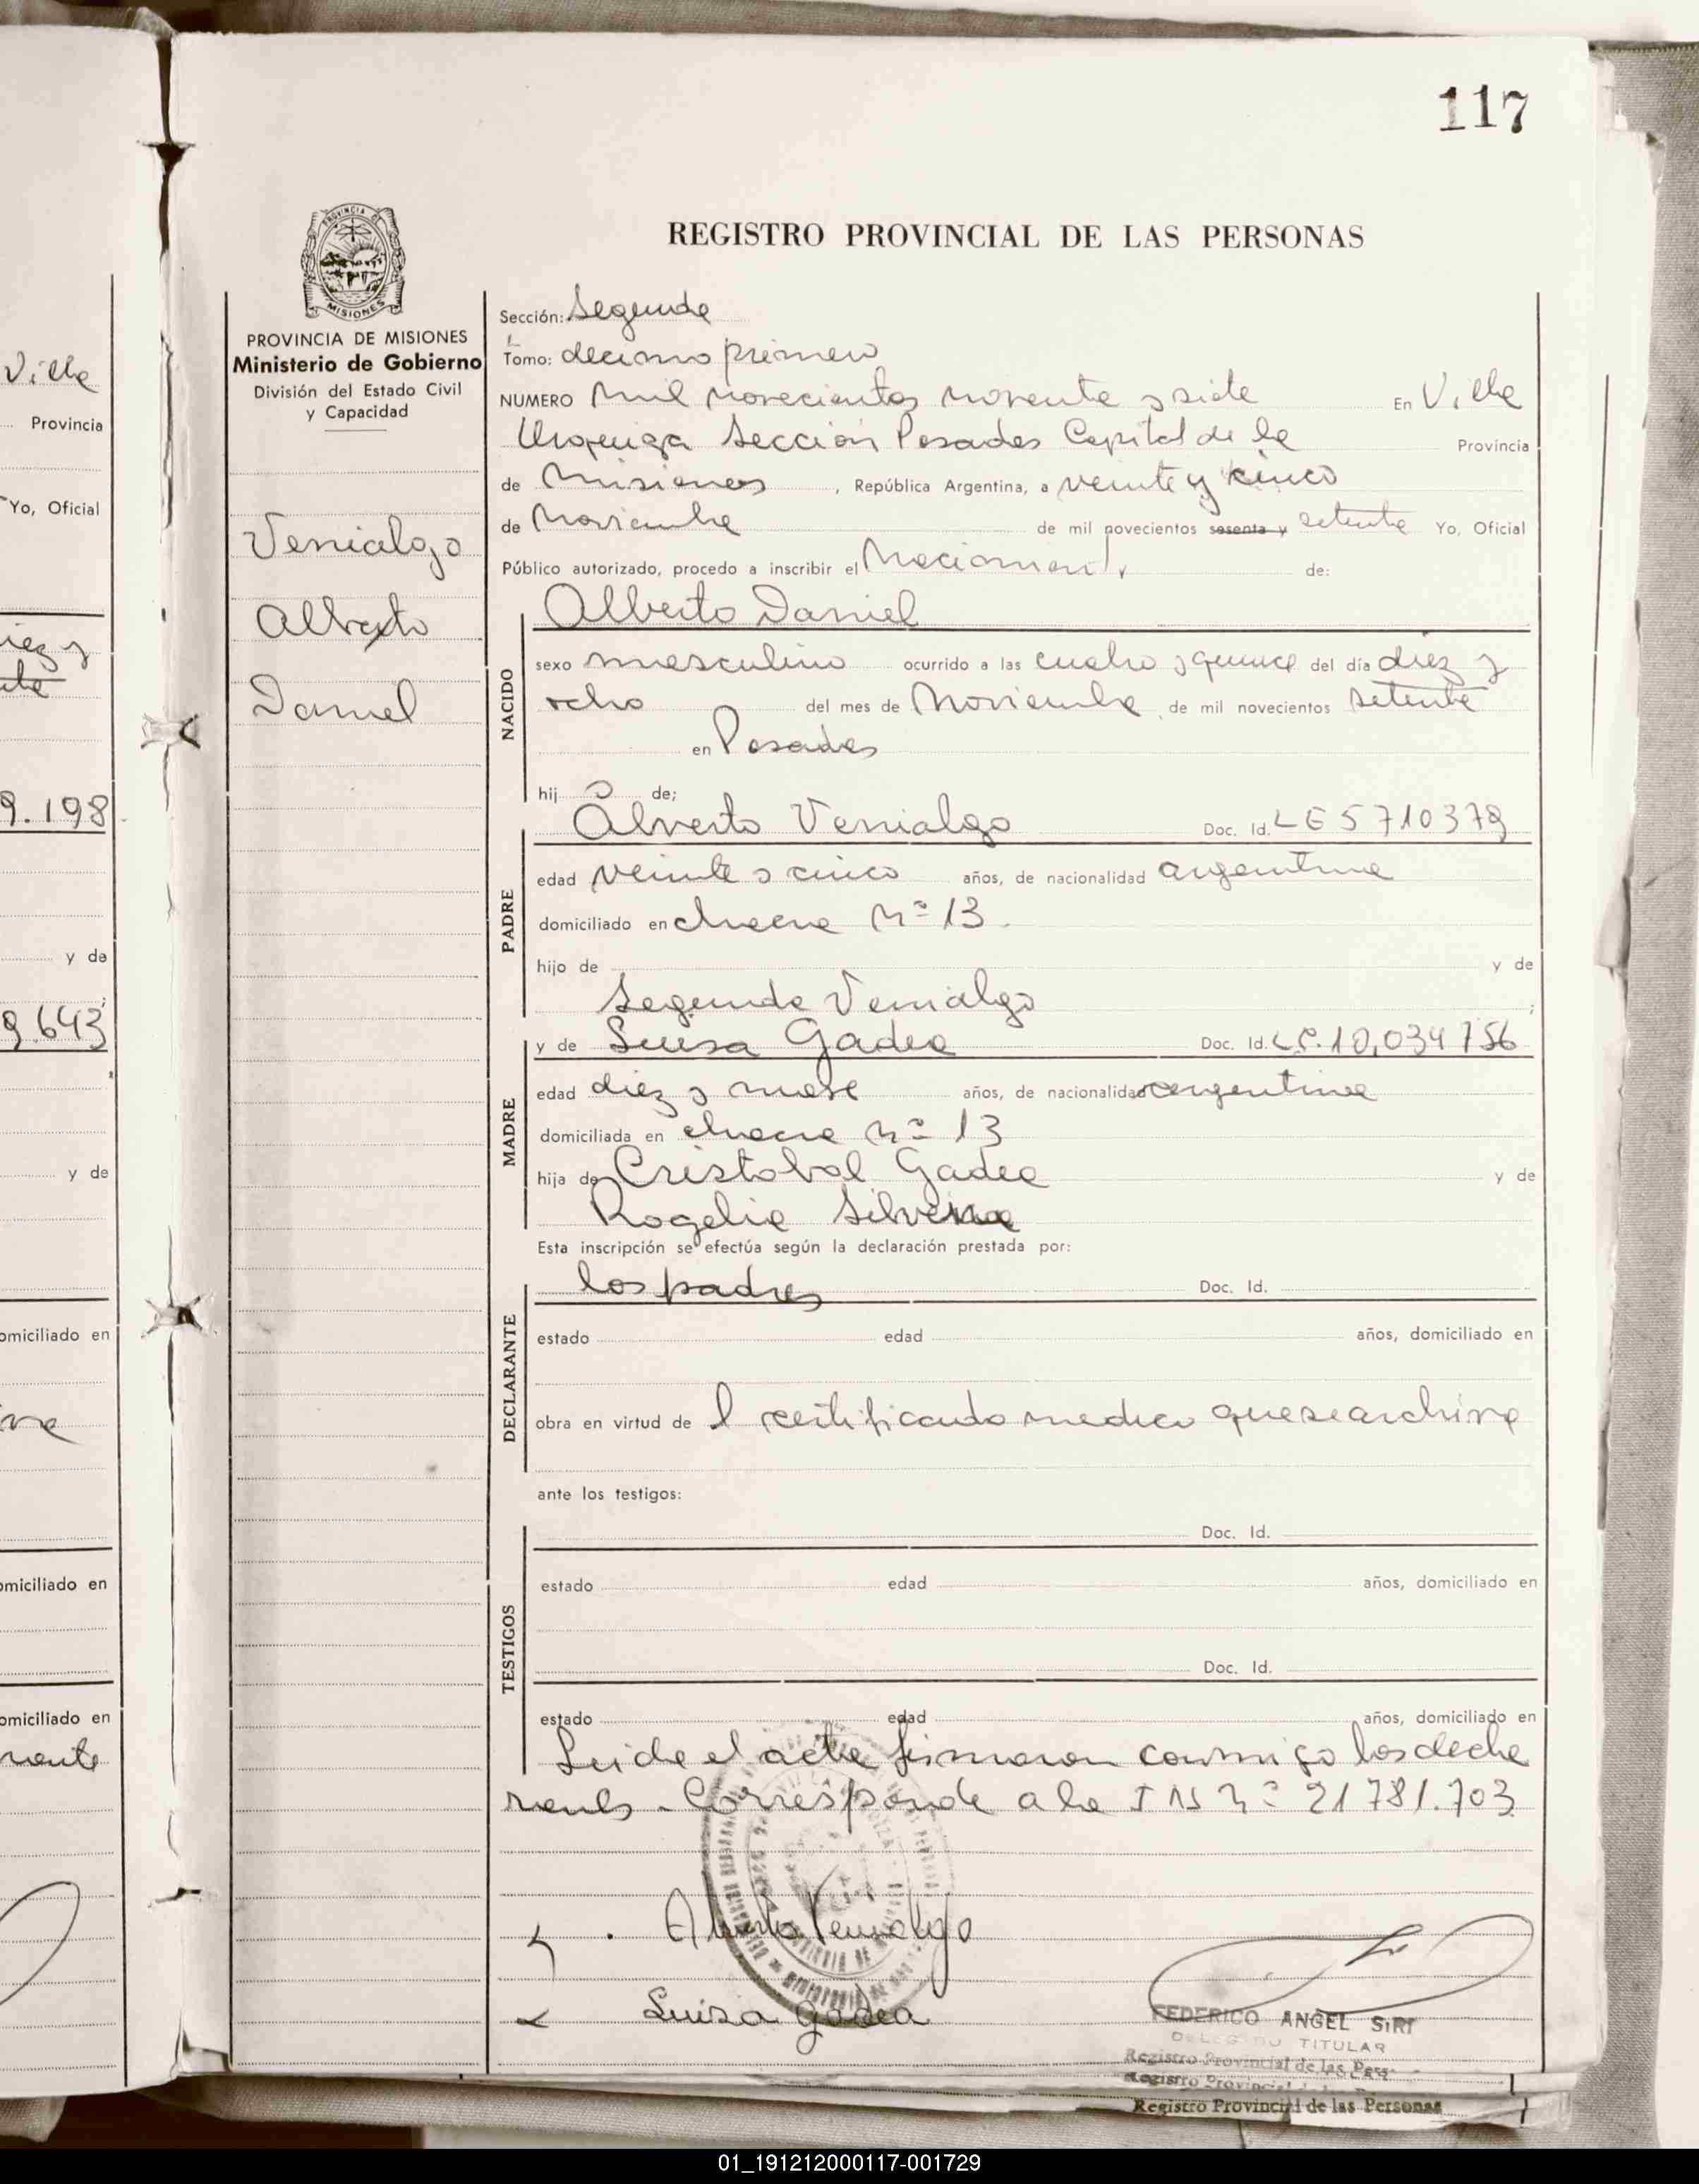 117
REGISTRO PROVINCIAL DE LAS PERSONAS
PROVINCIA DE MISIONES
PROVINCIA DE MISIONES
Ministerio de Gobierno
División del Estado Civil
y Capacidad
Venialgo
Alberto
Daniel
Sección: Segunda
Tomo: decimo primero
NUMERO Mil novecientos noventa y siete En Villa
Urquiza Sección Posadas Capital de la Provincia
de Misiones, República Argentina, a veinte y cinco
de Noviembre de mil novecientos sesenta y setenta Yo, Oficial
Público autorizado, procedo a inscribir el Nacimiento de:
Alberto Daniel
NACIDO
sexo masculino ocurrido a las cuatro y quince del día diez y
ocho del mes de Noviembre de mil novecientos setenta
en Posadas
hij o de;
Alverto Venialgo Doc. Id. LE 5710379
PADRE
edad veinte y cinco años, de nacionalidad argentina
domiciliado en chacra Nº 13.
hijo de y de
Segunda Venialgo ;
MADRE
y de Luisa Gadea Doc. Id. LC. 10,034 756
edad diez y nueve años, de nacionalidad argentina
domiciliada en chacra Nº 13
hija de Cristobal Gadea y de
Rogelia
Esta inscripción se efectúa según la declaración prestada por:
DECLARANTE
los padres Doc. Id.
estado edad años, domiciliado en
obra en virtud de l certificado medico que se archiva
ante los testigos:
TESTIGOS
Doc. Id.
estado edad años, domiciliado en
Doc. Id.
estado edad años, domiciliado en
Leida el acta firmaron conmigo los decla
rantes. Corresponde a la I N Nº 21 781.703
Alberto Venialgo
Luisa Gadea
FEDERICO ANGEL SIRI
DELEGADO TITULAR
Registro Provincial de las Pers
Registro Provincial
Registro Provincial de las Personas
Villa
Provincia
Yo, Oficial
iez y
9.198
y de
;
9.643
y de
omiciliado en
omiciliado en
omiciliado en
01_191212000117-001729